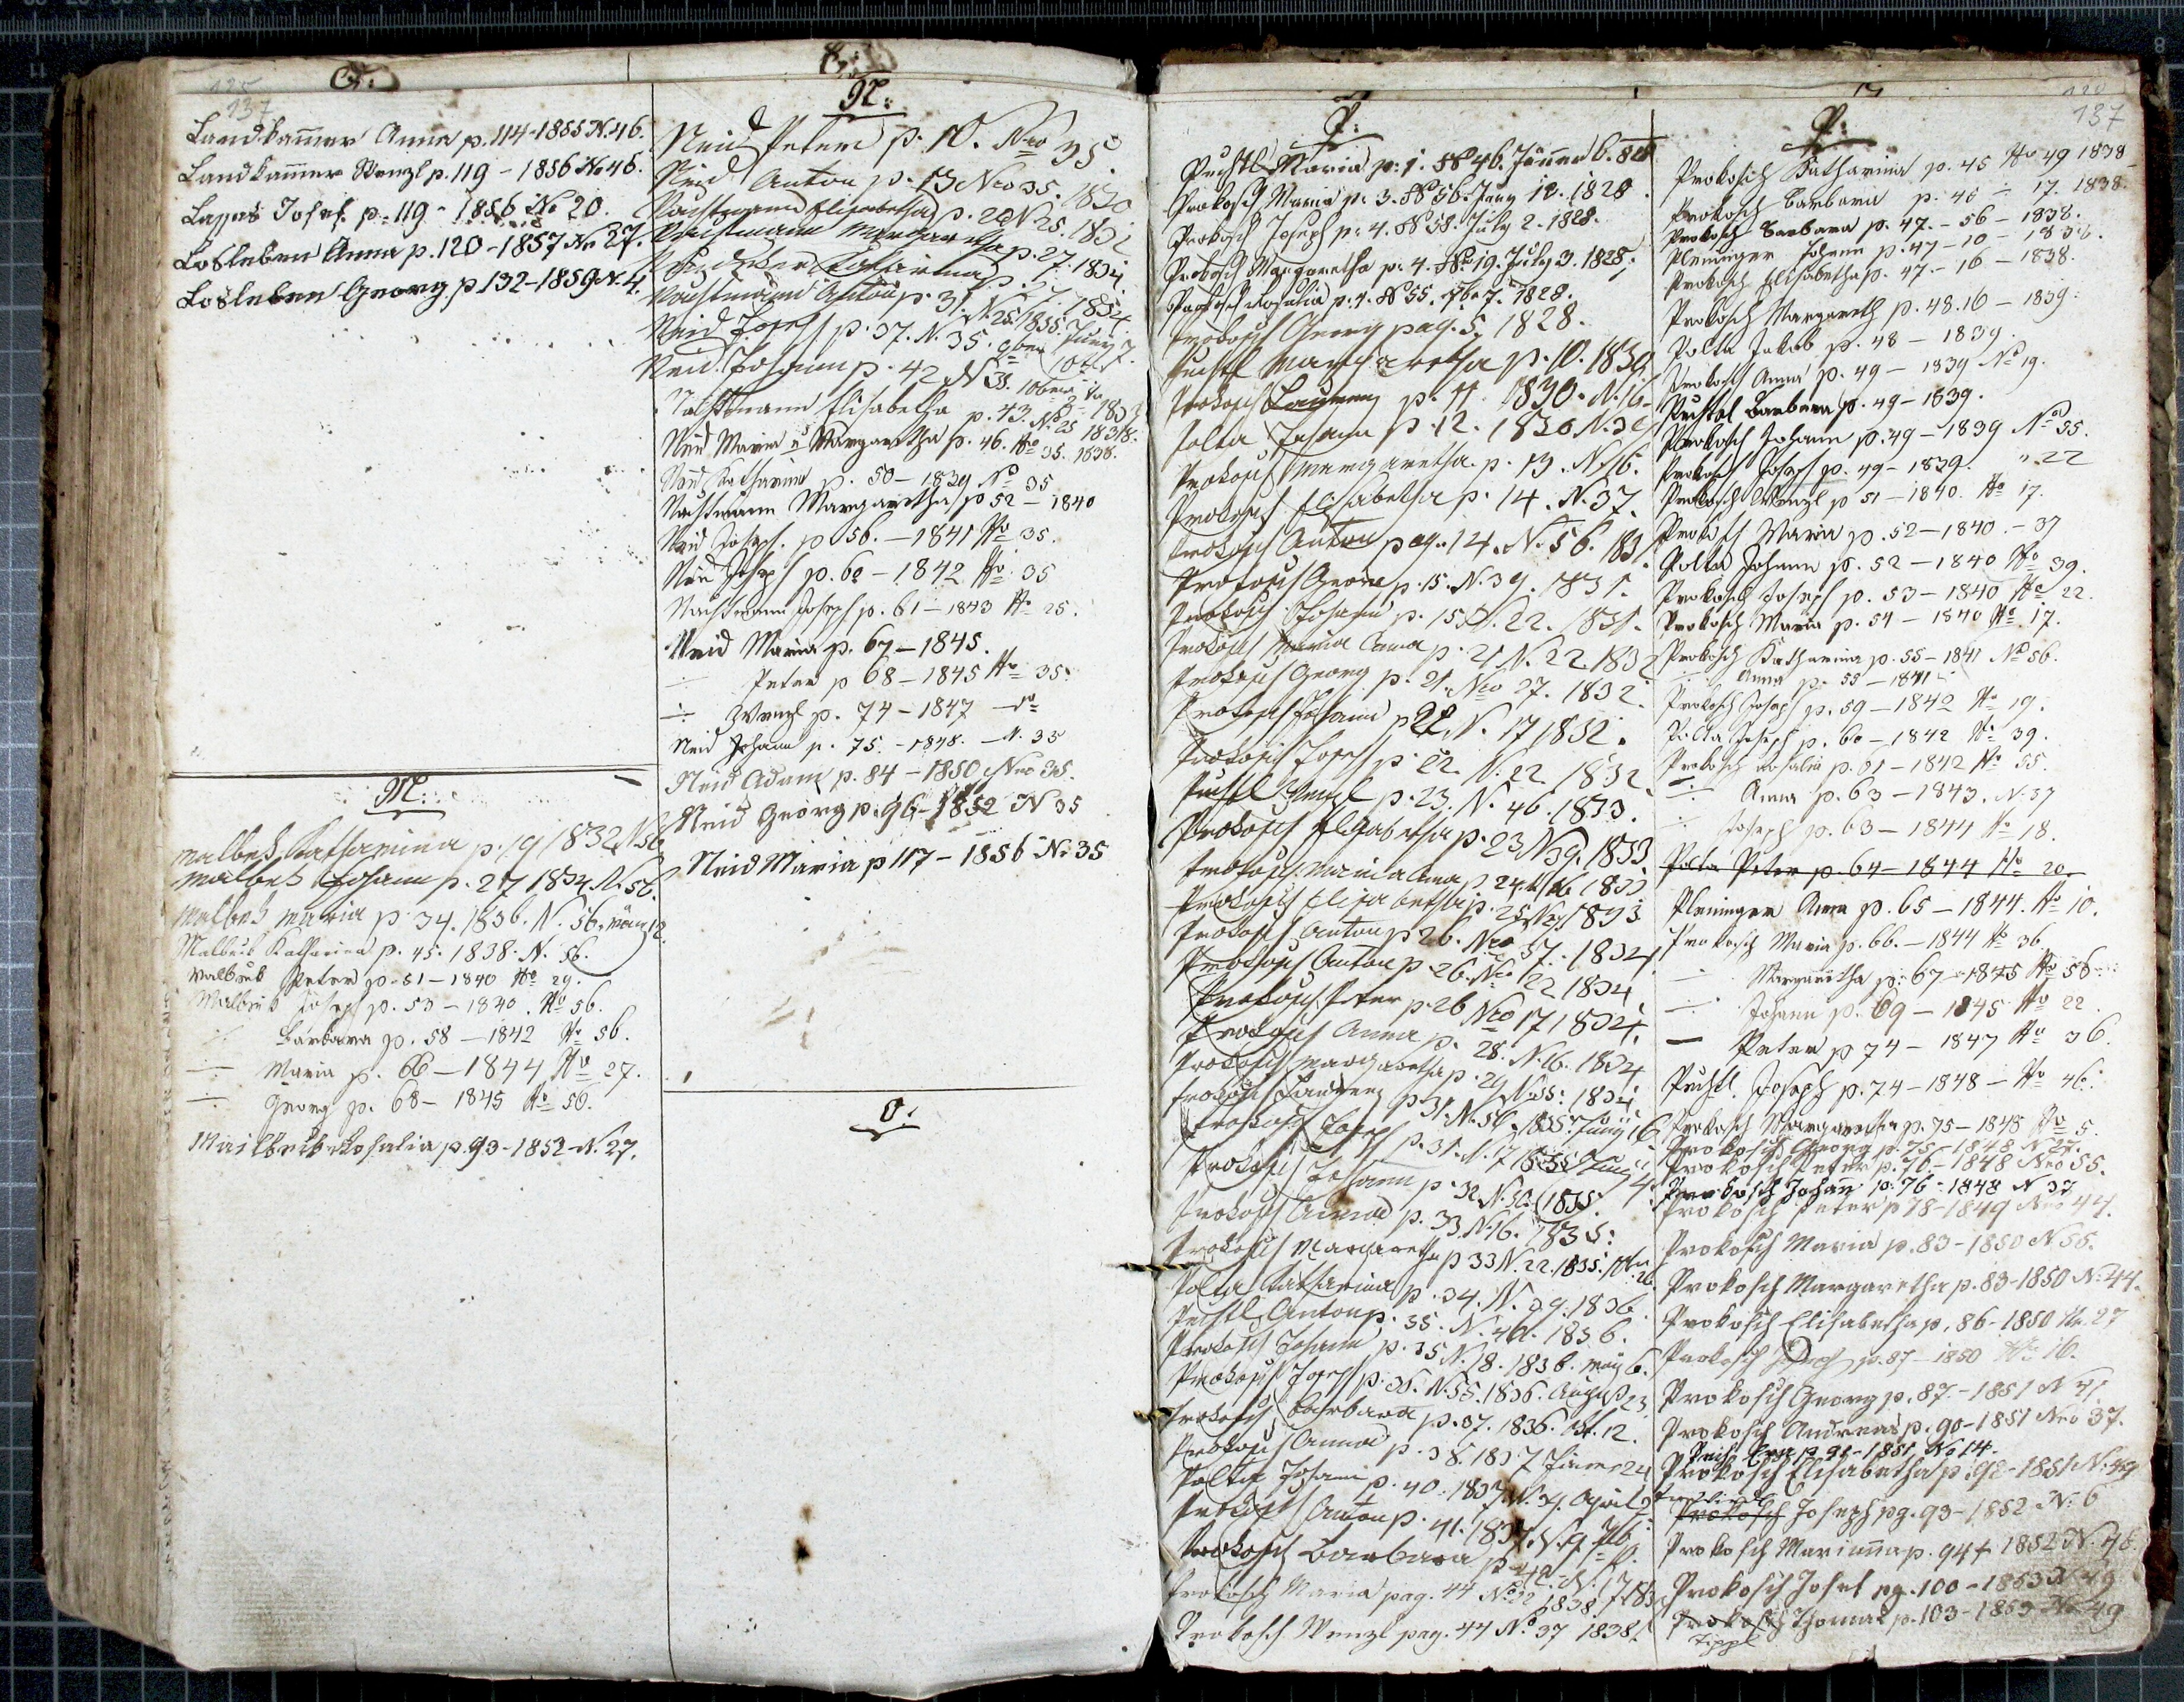 137
Landkam̅er Anna p. 114-1855 N. 46.
Landkam̅er Wenzl p. 119 - 1856 No 46.
Lappas Josef p. 119 - 1856 No 20.
Losleben Anna p. 120 - 1857 No 27.
Losleben Georg p. 132 - 1859 N. 4.
M:
Malbek Katharina p. 19 1832 N. 56
Malbek Johann p. 27 1834 N. 56.
Malbek Maria p. 34. 1836. N. 56. März 12.
Malbek Katharina p. 45. 1838. N. 56.
Malbek Peter p. 51 - 1840 No 29.
Malbek Joseph p. 53 - 1840. No 56.
÷ Barbara p. 58 - 1842 No 56.
÷ Maria p. 66 - 1844 No 27.
÷ Georg p. 68 - 1845 No 56.
Mailbeck Rosalia p. 93 - 1852 - N. 27.
N:
Neid Peter p. 10. Nro 35
Neid Anton p. 13 Nro 35. 1830
Nachtmann Elisabetha p. 20 N 25. 1832
Nachtmann Margaretha p. 27. 1834.
Nachtmann Anton p. 31. N. 25. 1835. Juny 7.
Neid Joseph p. 37. N. 35. 9ber
Neid Johann p. 42 N 35. 10ber
Nachtmann Elisabetha p. 43 No 25 1838.
Neid Maria u Margaretha p. 46. No 35. 1838.
Neid Katharina p. 50 - 1839 No 35
Nachtmann Margaretha p 52 - 1840
Neid Joseph. p 56. - 1841 No 35.
Neid Joseph p. 60 - 1842 No 35
Nachtmann Joseph p. 61 - 1843 No 25.
Neid Maria p. 67 - 1845.
÷ Peter p 68 - 1845 No 35.
÷ Wenzl p. 74 - 1847 - do
Neid Johann p. 75. - 1848. - N. 35
Neid Adam p. 84 - 1850 Nro 35.
Neid Georg p. 96 - 1852 N 35
Neid Maria p 117 - 1856 No 35
O:
P:
Puchtl Maria p: 1. No 46. Jänner 6. 828
Prokosch Maria p: 3. No 56. Juny 12. 1828.
Prokosch Joseph p: 4. No 58. July 2. 1828.
Prokosch Margaretha p: 4. No 19. July 3. 1828.
Prokosch Rosalia p: 4. No 55. 7br 7. 1828.
Prokosch Georg pag. 5. 1828.
Puchtl Margaretha p. 10. 1830
Prokosch Laurenz p. 11. 1830. N. 16.
Polta Johann p. 12. 1830 N. 39
Prokosch Margaretha. p. 13. N. 16.
Prokosch Elisabetha p. 14. N. 37.
Prokosch Anton pag. 14. N. 56. 1831.
Prokosch Georg p. 15. N. 39. 1831.
Prokosch Johann p. 15 N. 22. 1831.
Prokosch Maria Anna p. 21 N. 22 1832
Prokosch Georg p. 21. Nro 27. 1832.
Prokosch Johann p 21 N. 17 1832.
Prokosch Joseph p. 22. N. 22 1832
Puchtl Wenzl p. 23. N. 46. 1833.
Prokosch Elisabetha p. 23 N 39. 1833
Prokosch Maria Anna p. 24. N 16 1833
Prokosch Elisabetha p. 25 1833
Prokosch Anton p 26. Nro 37. 1834
Prokosch Anton p. 26. Nro 22 1834
Prokosch Peter p 26 Nro 17 1834.
Prokosch Anna p. 28. N. 16. 1834
Prokosch Margaretha p. 29 N. 55. 1834
Prokosch Laurenz p 31. N. 56. 1835 Juny 16
Prokosch Joseph p. 31. N. 17 1835 Juny
Prokosch Johann p. 32 N. 1835.
Prokosch Anna p. 33 N. 16. 1835.
Prokosch Margaretha p 33 N. 22. 1835. 10ber 26
Polta Katharina p. 34. N. 39. 1836
Puchtl Anton p. 35. N. 46. 1836.
Prokosch Johann p. 35 N. 18. 1836. May 6.
Prokosch Joseph p. 36. N. 55. 1836. August 23.
Prokosch Barbara p. 37. 1836. Okt. 12.
Prokosch Anna p. 38. 1837 Jänner 24
Polta Johann p. 40. 1837. N. 39. April
Prokosch Anton p. 41. 1837.
Prokosch Barbara p 42. N. 17
Prokosch Maria pag. 44 No 22 1838
Prokosch Wenzl pag. 44 No 37 1838.
137
P:
Prokosch Katharina p. 45 No 49 1838
Prokosch Barbara p. 45 ÷ 17. 1838.
Prokosch Barbara p. 47. - 56 - 1838.
Pleninger Johann p. 47 - 10 - 1838.
Prokosch Elisabetha p. 47. - 16 - 1838.
Prokosch Margareth p. 48. 16 - 1839.
Polta Jakob p. 48 - 1839.
Prokosch Anna p. 49 - 1839 No 19.
Puchtl Barbara p. 49 - 1839.
Prokosch Johann p. 49 - 1839 No 55.
Prokosch Joseph p. 49 - 1839. " 22
Prokosch Wenzl p 51 - 1840. No 17.
Prokosch Maria p. 52 - 1840. - 37
Polta Johann p. 52 - 1840 No 39.
Prokosch Joseph p. 53 - 1840 No 22.
Prokosch Maria p. 54 - 1840 No 17.
Prokosch Katharina p. 55 - 1841 No 56.
÷ Anna p. 55 - 1841
Prokosch Joseph p. 59 - 1842 No 19.
Polta Joseph p. 60 - 1842 No 39.
Prokosch Rosalia p. 61 - 1842 No 55.
÷ Anna p. 63 - 1843. N. 37
÷ Joseph p. 63 - 1844 No 18.
Polta Peter p. 64 - 1844 No 20.
Pleninger Anna p. 65 - 1844. No 10.
Prokosch Maria p. 66. - 1844 No 36.
— Margaretha p. 67 - 1845 No 56
÷ Johann p. 69 - 1845 No 22.
— Peter p 74 - 1847 No 36.
Puchtl. Joseph p. 74 - 1848 - No 46.
Prokosch Margaretha p. 75 - 1848 No 5.
Prokosch Georg p. 75 - 1848 N 27.
Prokosch Peter p. 76. - 1848 Nro 55.
Prokosch Johann p. 76 - 1848 N 37
Prokosch Peter p 78 - 1849 Nro 44.
Prokosch Maria p. 83 - 1850 N 55.
Prokosch Margaretha p. 83 - 1850 N. 44.
Prokosch Elisabetha p. 86 - 1850 No. 27
Prokosch Joseph p. 87 - 1850 No 16.
Prokosch Georg p. 87. - 1851 N 41
Prokosch Andreas p. 90 - 1851 Nro 37.
p. 91 - 1851 No 14.
Prokosch Elisabetha p. 92 - 1851 N. 49
Prokosch Joseph pg. 93 - 1852 N: 6
Prokosch Marianna p. 94 + 1852 N. 46.
Prokosch Josef pg. 100 - 1853 N 49
Prokosch Thomas p. 103 - 1853 No 49
Tippl